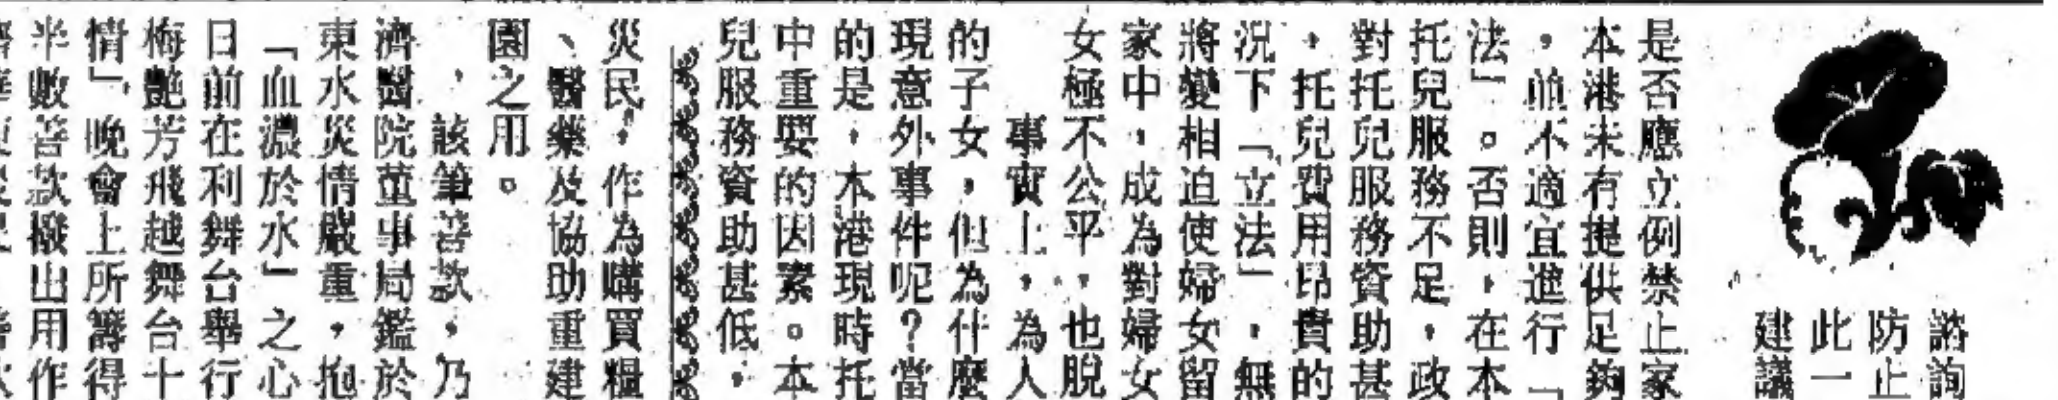 諮詢
防止
此一
建議
是否應立例禁止家
本港未有提供足夠
，並不適宜進行「
法」。否則，在本
托兒服務不足，政
對托兒服務資助甚
，托兒費用昂貴的
況下「立法」，無
將變相迫使婦女留
家中，成為對婦女
女極不公平，也脫
事實上，為人
的子女，但為什麼
現意外事件呢？當
的是，本港現時托
中重要的因素。本
兒服務資助甚低，
災民，作為購買糧
、醫藥及協助重建
園之用。
該筆善款，乃
濟醫院董事局鑑於
東水災情嚴重，抱
「血濃於水」之心
日前在利舞台舉行
梅艷芳飛越舞台十
情」晚會上所籌得
半數善款撥出用作